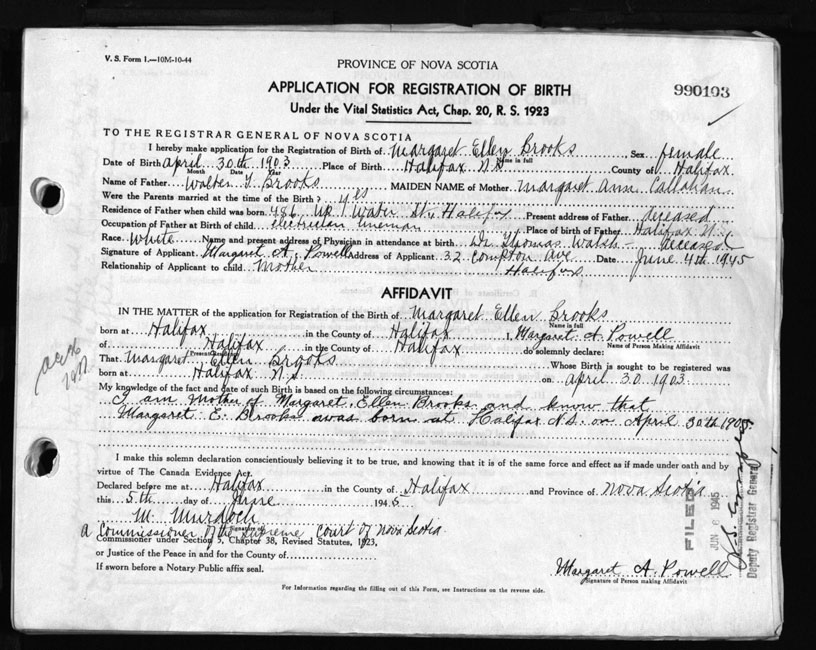 V. S. Form 1.—10M-10-44
PROVINCE OF NOVA SCOTIA
APPLICATION FOR REGISTRATION OF BIRTH
990103
Under the Vital Statistics Act, Chap. 20, R. S. 1923
TO THE REGISTRAR GENERAL OF NOVA SCOTIA
I hereby make application for the Registration of Birth of Margaret Ellen Brooks, Sex female
Name in full
Date of Birth April 30th 1903 Place of Birth Halifax N.S County of Halifax
Month Date Year
Name of Father Walter Y Brooks MAIDEN NAME of Mother Margaret Ann Callahan
Were the Parents married at the time of the Birth? yes
Residence of Father when child was born 486 up Water St., Halifax Present address of Father deceased
Occupation of Father at Birth of child electrician lineman Place of birth of Father Halifax N.S
Race White Name and present address of Physician in attendance at birth Dr Thomas Walsh - deceased
Signature of Applicant Margaret A. Powell Address of Applicant 32 Compton Ave Date June 4th 1945
Relationship of Applicant to child Mother Halifax
AFFIDAVIT
IN THE MATTER of the application for Registration of the Birth of Margaret Ellen Brooks
Name in full
born at Halifax in the County of Halifax I, Margaret A Powell
Name of Person Making Affidavit
of Halifax in the County of Halifax do solemnly declare:
Present Residence
That Margaret Ellen Brooks Whose Birth is sought to be registered was
born at Halifax N.S on April 30 1903
My knowledge of the fact and date of such Birth is based on the following circumstances:
I am Mother of Margaret Ellen Brooks and know that
Margaret E. Brooks was born at Halifax N.S. on April 30th 1903.
I make this solemn declaration conscientiously believing it to be true, and knowing that it is of the same force and effect as if made under oath and by
virtue of The Canada Evidence Act.
Declared before me at Halifax in the County of Halifax and Province of Nova Scotia
this 5th day of June 1945
M. Murdoch
Signature of
A Commissioner of the Supreme Court of Nova Scotia
Commissioner under Section 5, Chapter 38, Revised Statutes, 1923,
or Justice of the Peace in and for the County of
If sworn before a Notary Public affix seal.
Margaret A. Powell
Signature of Person making Affidavit
For Information regarding the filling out of this Form, see Instructions on the reverse side.
FILED
JUN 6 1945
Deputy Registrar General